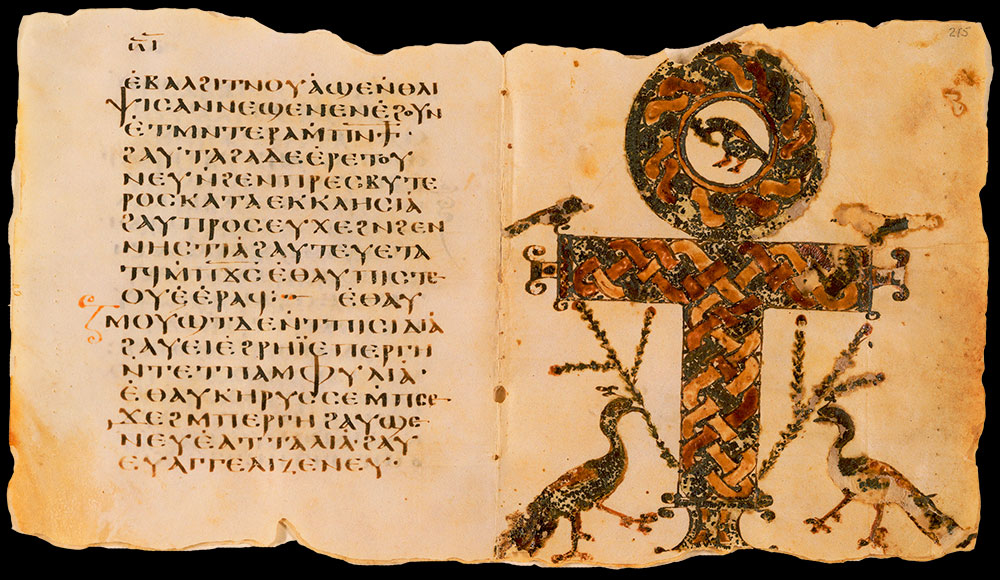 ⲉ̇ⲃⲁⲗϩⲓⲧⲛⲟⲩⲁ̇ϣⲉⲛⲑⲗⲓ
ⲯⲓⲥⲁⲛⲛⲉϣⲉⲛⲉⲛⲉ̇ϩⲟⲩⲛ
ⲉ̇ⲧⲙⲛⲧⲉⲣⲁⲙ̇ⲡⲛ̅ϯ·
ϩⲁⲩⲧⲁϩⲁⲇⲉⲉ̇ⲣⲉⲧⲟⲩ
ⲛⲉⲩⲛ̇ϩⲉⲛⲡⲣⲉⲥⲃⲩⲧⲉ
ⲣⲟⲥⲕⲁⲧⲁⲉⲕⲕⲗⲏⲥⲓⲁ
ϩⲁⲩⲡⲣⲟⲥⲉⲩⲭⲉϩⲛϩⲉⲛ
ⲛⲏⲥⲧⲓⲁ̇ϩⲁⲩⲧⲉⲩⲉⲧⲁ
ⲧϥⲙ̇ⲡⲭ̅ⲥ̅ⲉ̇ⲑⲁⲩⲡⲓⲥⲧⲉ
ⲟⲩⲉ̇ⲉ̇ⲣⲁϥ:– ⲉ̇ⲑⲁⲩ
ⲙⲟⲩϣⲧⲁⲉ̇ⲛⲧⲡⲓⲥⲓⲇⲓⲁ̇
ϩⲁⲩⲉⲓⲉ̇ϩⲣⲏⲓ̈ⲉⲡⲉⲣⲅⲏ
ⲛⲧⲉⲧⲡⲁⲙⲫⲩⲗⲓⲁ̇·
ⲉ̇ⲑⲁⲩⲕⲏⲣⲩⲥⲥⲉⲙ̇ⲡⲥⲉ
ϫⲉϩⲙⲡⲉⲣⲅⲏϩⲁⲩϣⲉ
ⲛⲉⲩⲉ̇ⲁⲧⲧⲁⲗⲓⲁ̇·ϩⲁⲩ
ⲉⲩⲁⲅⲅⲉⲗⲓⲍⲉⲛⲉⲩ·
215